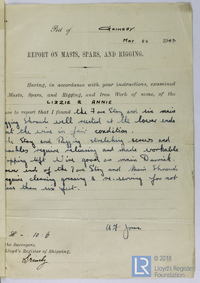 Port of Grimsby
Mar
REPORT ON MASTS, SPARS, AND RIGGING.
Having, in accordance with your instructions, examined
Masts, Spars, and Rigging, and Iron Work of same, of the
LIZZIE & ANNIE
to report that I found the Fore Stay and six main
shrouds well rusted at the lower ends
the wire in fair condition.
Stay and Rigging stretching screws and
shackles require cleaning and made workable
good as main Davit.
lower end of the Fore Stay and their shrouds
require cleaning greasing & re-serving for not
than six feet.
Jones
the Surveyors,
Lloyd's Register of Shipping,
Grimsby
© 2018
Lloyd's Register
Foundation